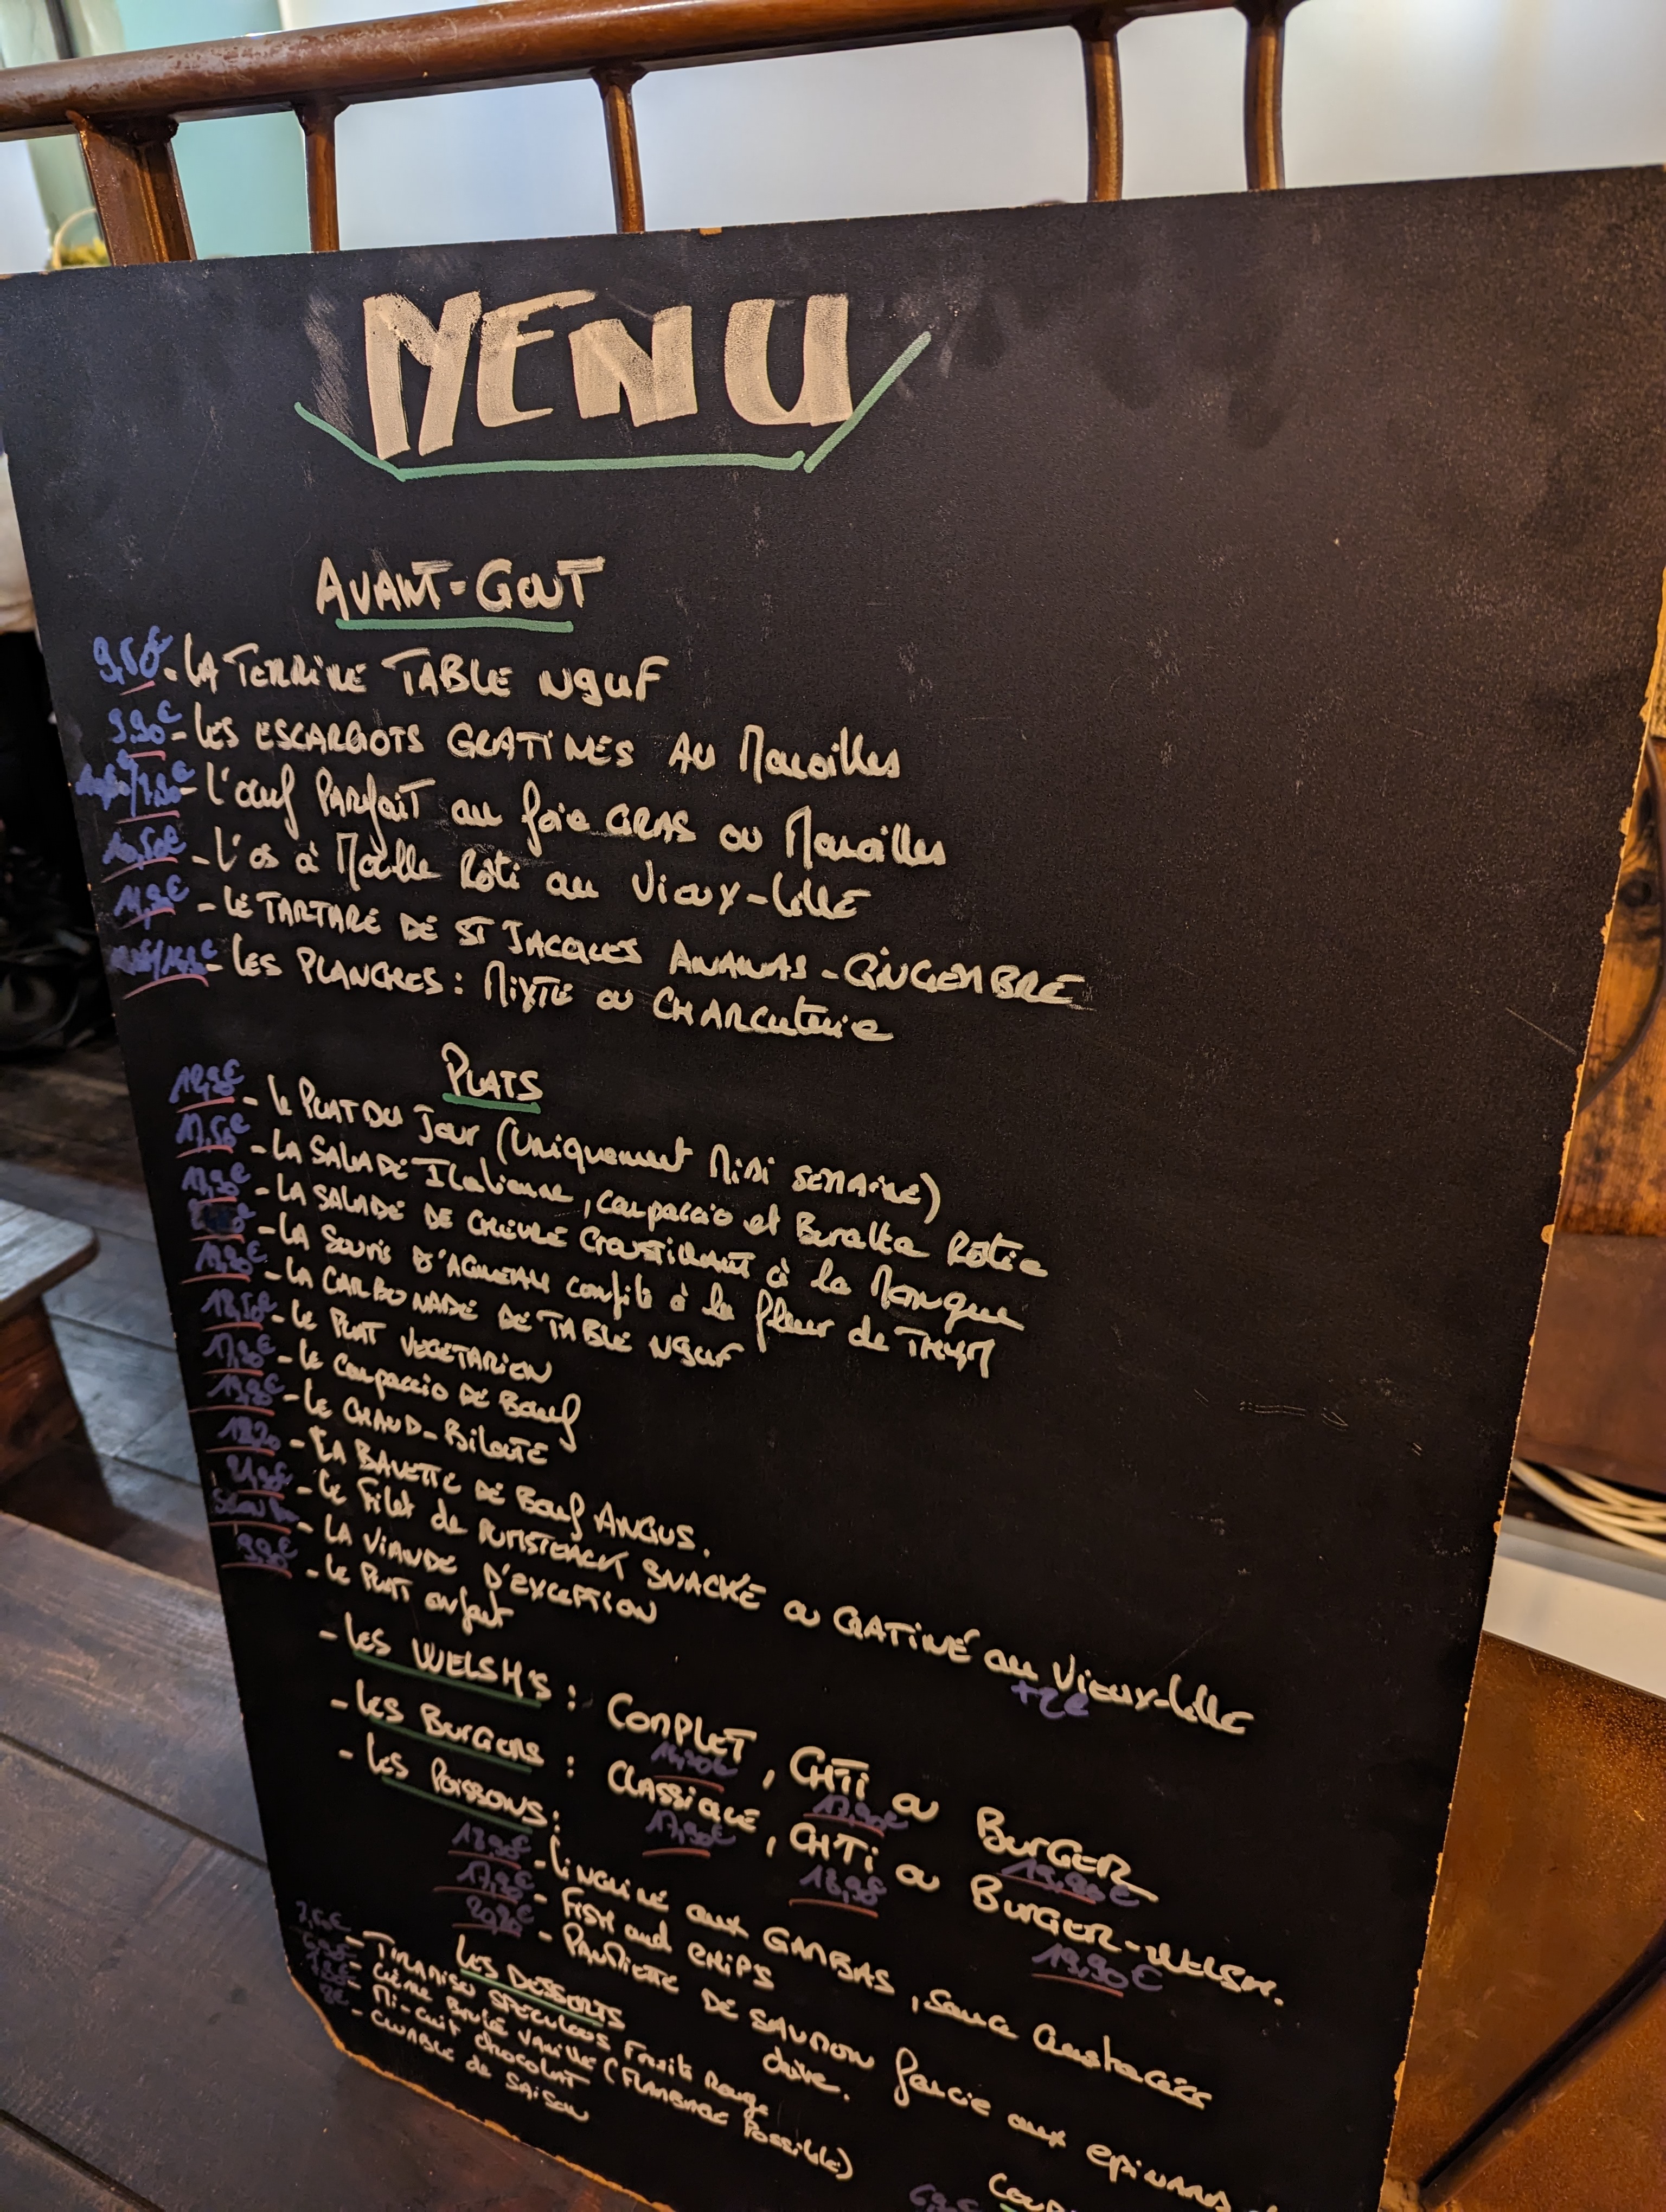 MENU
AVANT-GOUT
9,50€ - LA TERRINE TABLE N9UF
9,90€ - LES ESCARGOTS GRATINES AU Maroilles
- L'œuf PARfAIT au foie GRAS ou Maroilles
10,50€ - L'os à Moëlle Rôti au Vieux-Lille
11,9€ - LE TARTARE DE ST JACQUES ANANAS-GINGEMBRE
- LES PLANCHES : MIXTE ou CHARCUTERIE
PLATS
- Le PLAT DU Jour (Uniquement MIDI SEMAINE)
17,50€ - LA SALADE Italienne, carpaccio et Buratta Rôtie
- LA SALADE DE CHEVRE Croustillant à la Mangue
- LA Souris D'AGNEAU confite à la fleur de THYM
- LA CARBONADE DE TABLE N9UF
- Le PLAT VEGETARIEN
17,90€ - Le carpaccio DE Bœuf
- Le CHAUD-BILOUTE
- LA BAVETTE DE Bœuf ANGUS.
- Le Filet de RUMSTEACK SNACKÉ ou GRATINÉ au Vieux-Lille
+2€
- LA VIANDE D'EXCEPTION
9,90€ - Le PLAT enfant
- LES WELSH'S : COMPLET, CH'TI ou BURGER
- LES BURGERS : CLASSIQUE, CH'TI ou BURGER-WELSH.
17,90€ 18,90€ 19,90€
- LES POISSONS :
18,90€ - LINGUINE aux GAMBAS, sauce Crustacés
17,90€ - FISH and CHIPS
- PAUPIETTE DE SAUMON farcie aux epinards
LES DESSERTS
- TIRAMISU SPECULOOS Fruits Rouge
- Crème Brulé Vanille (FLAMBAGE Possible)
- Mi-cuit chocolat
8€ - CRUMBLE de SAISON